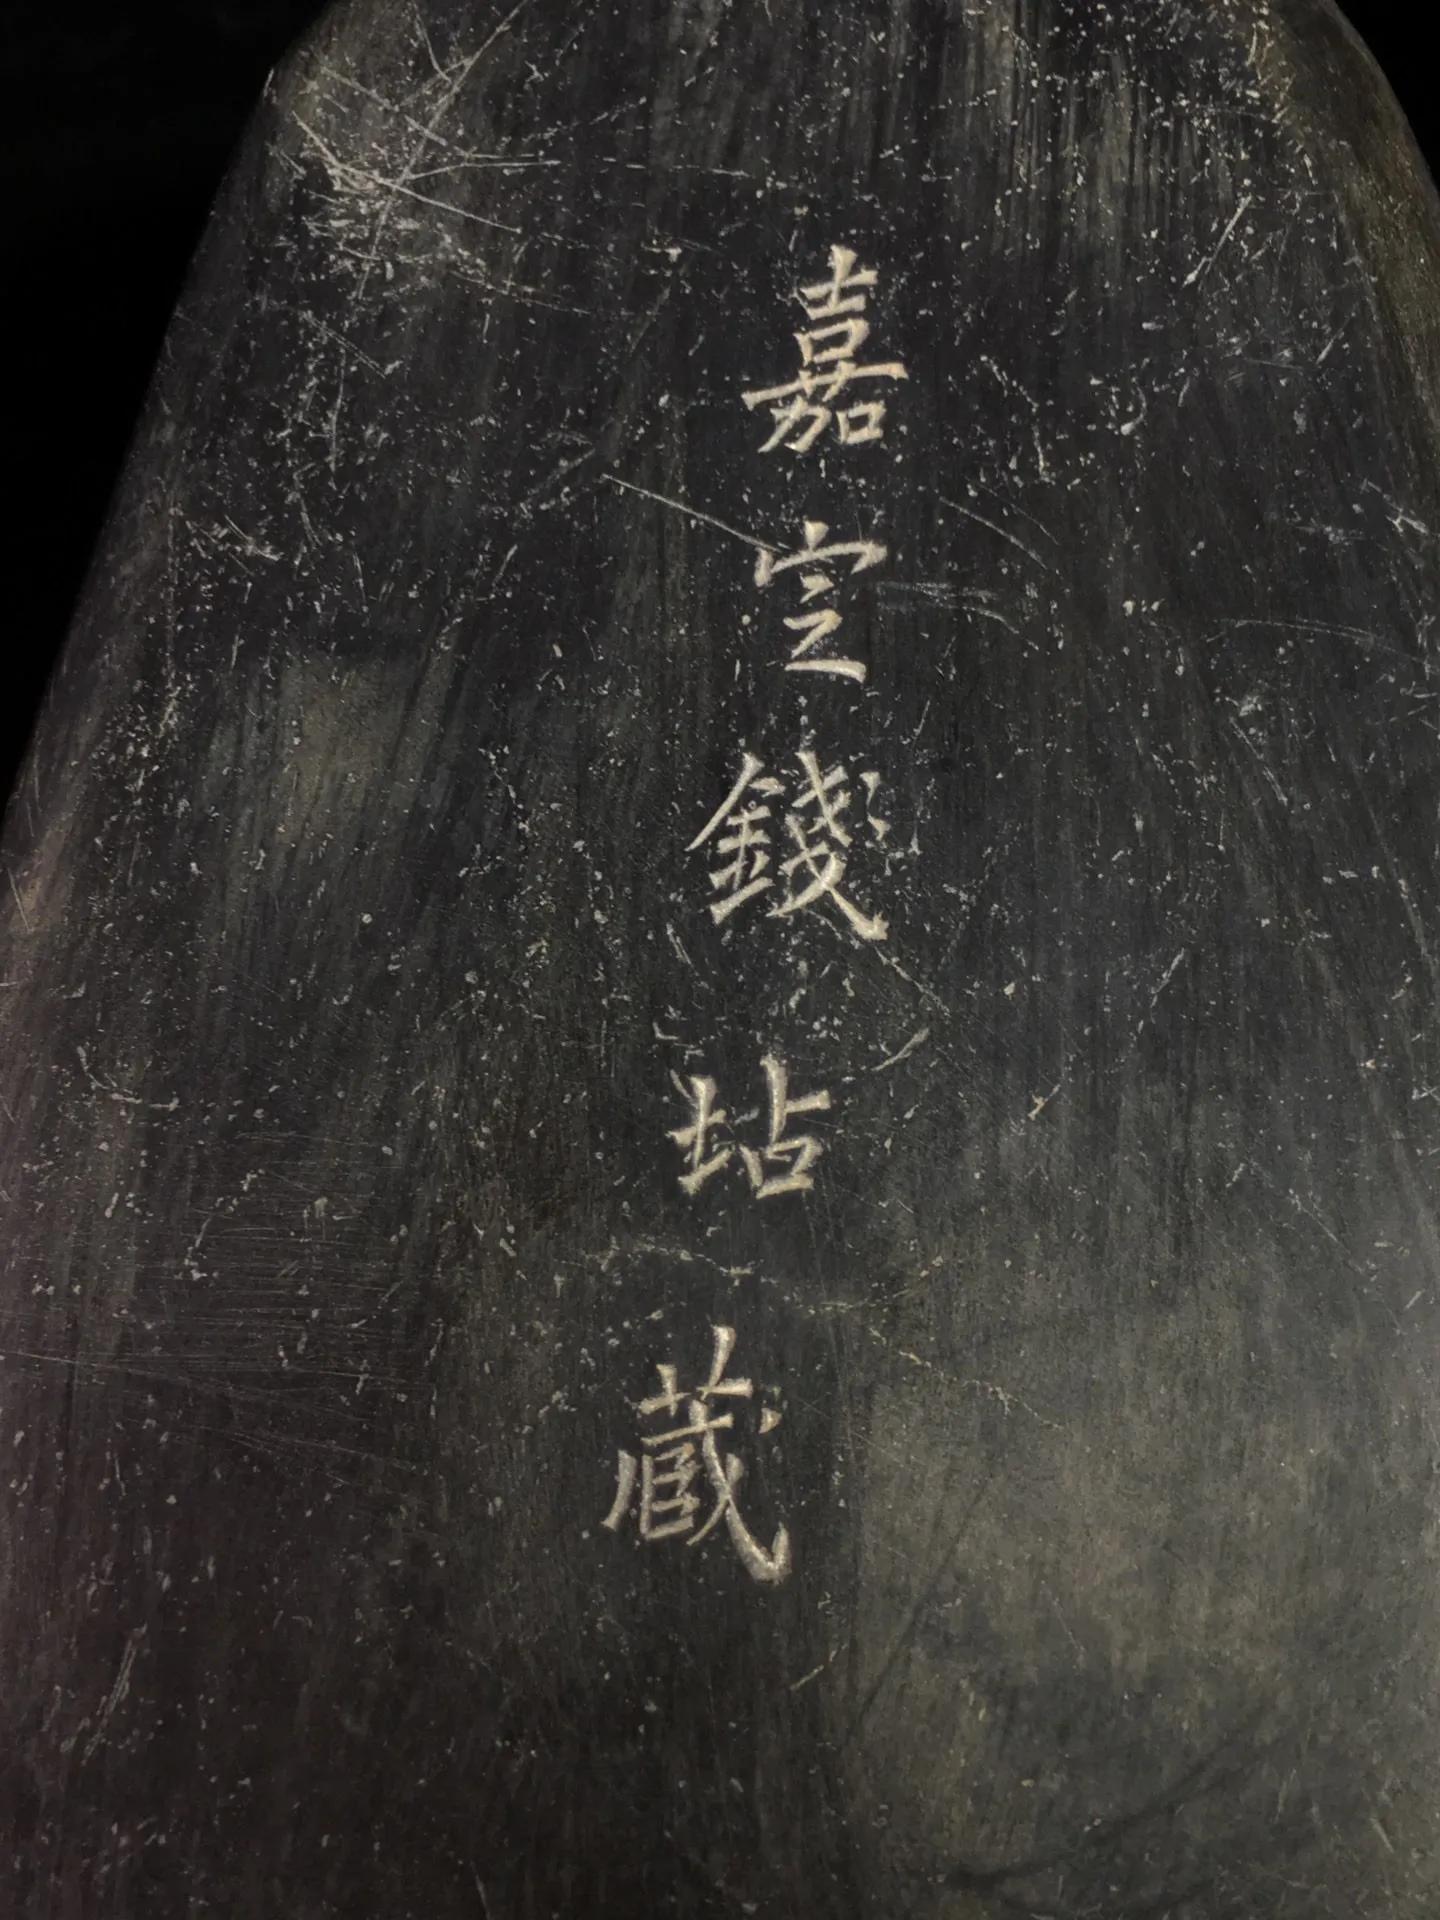 嘉定錢坫藏